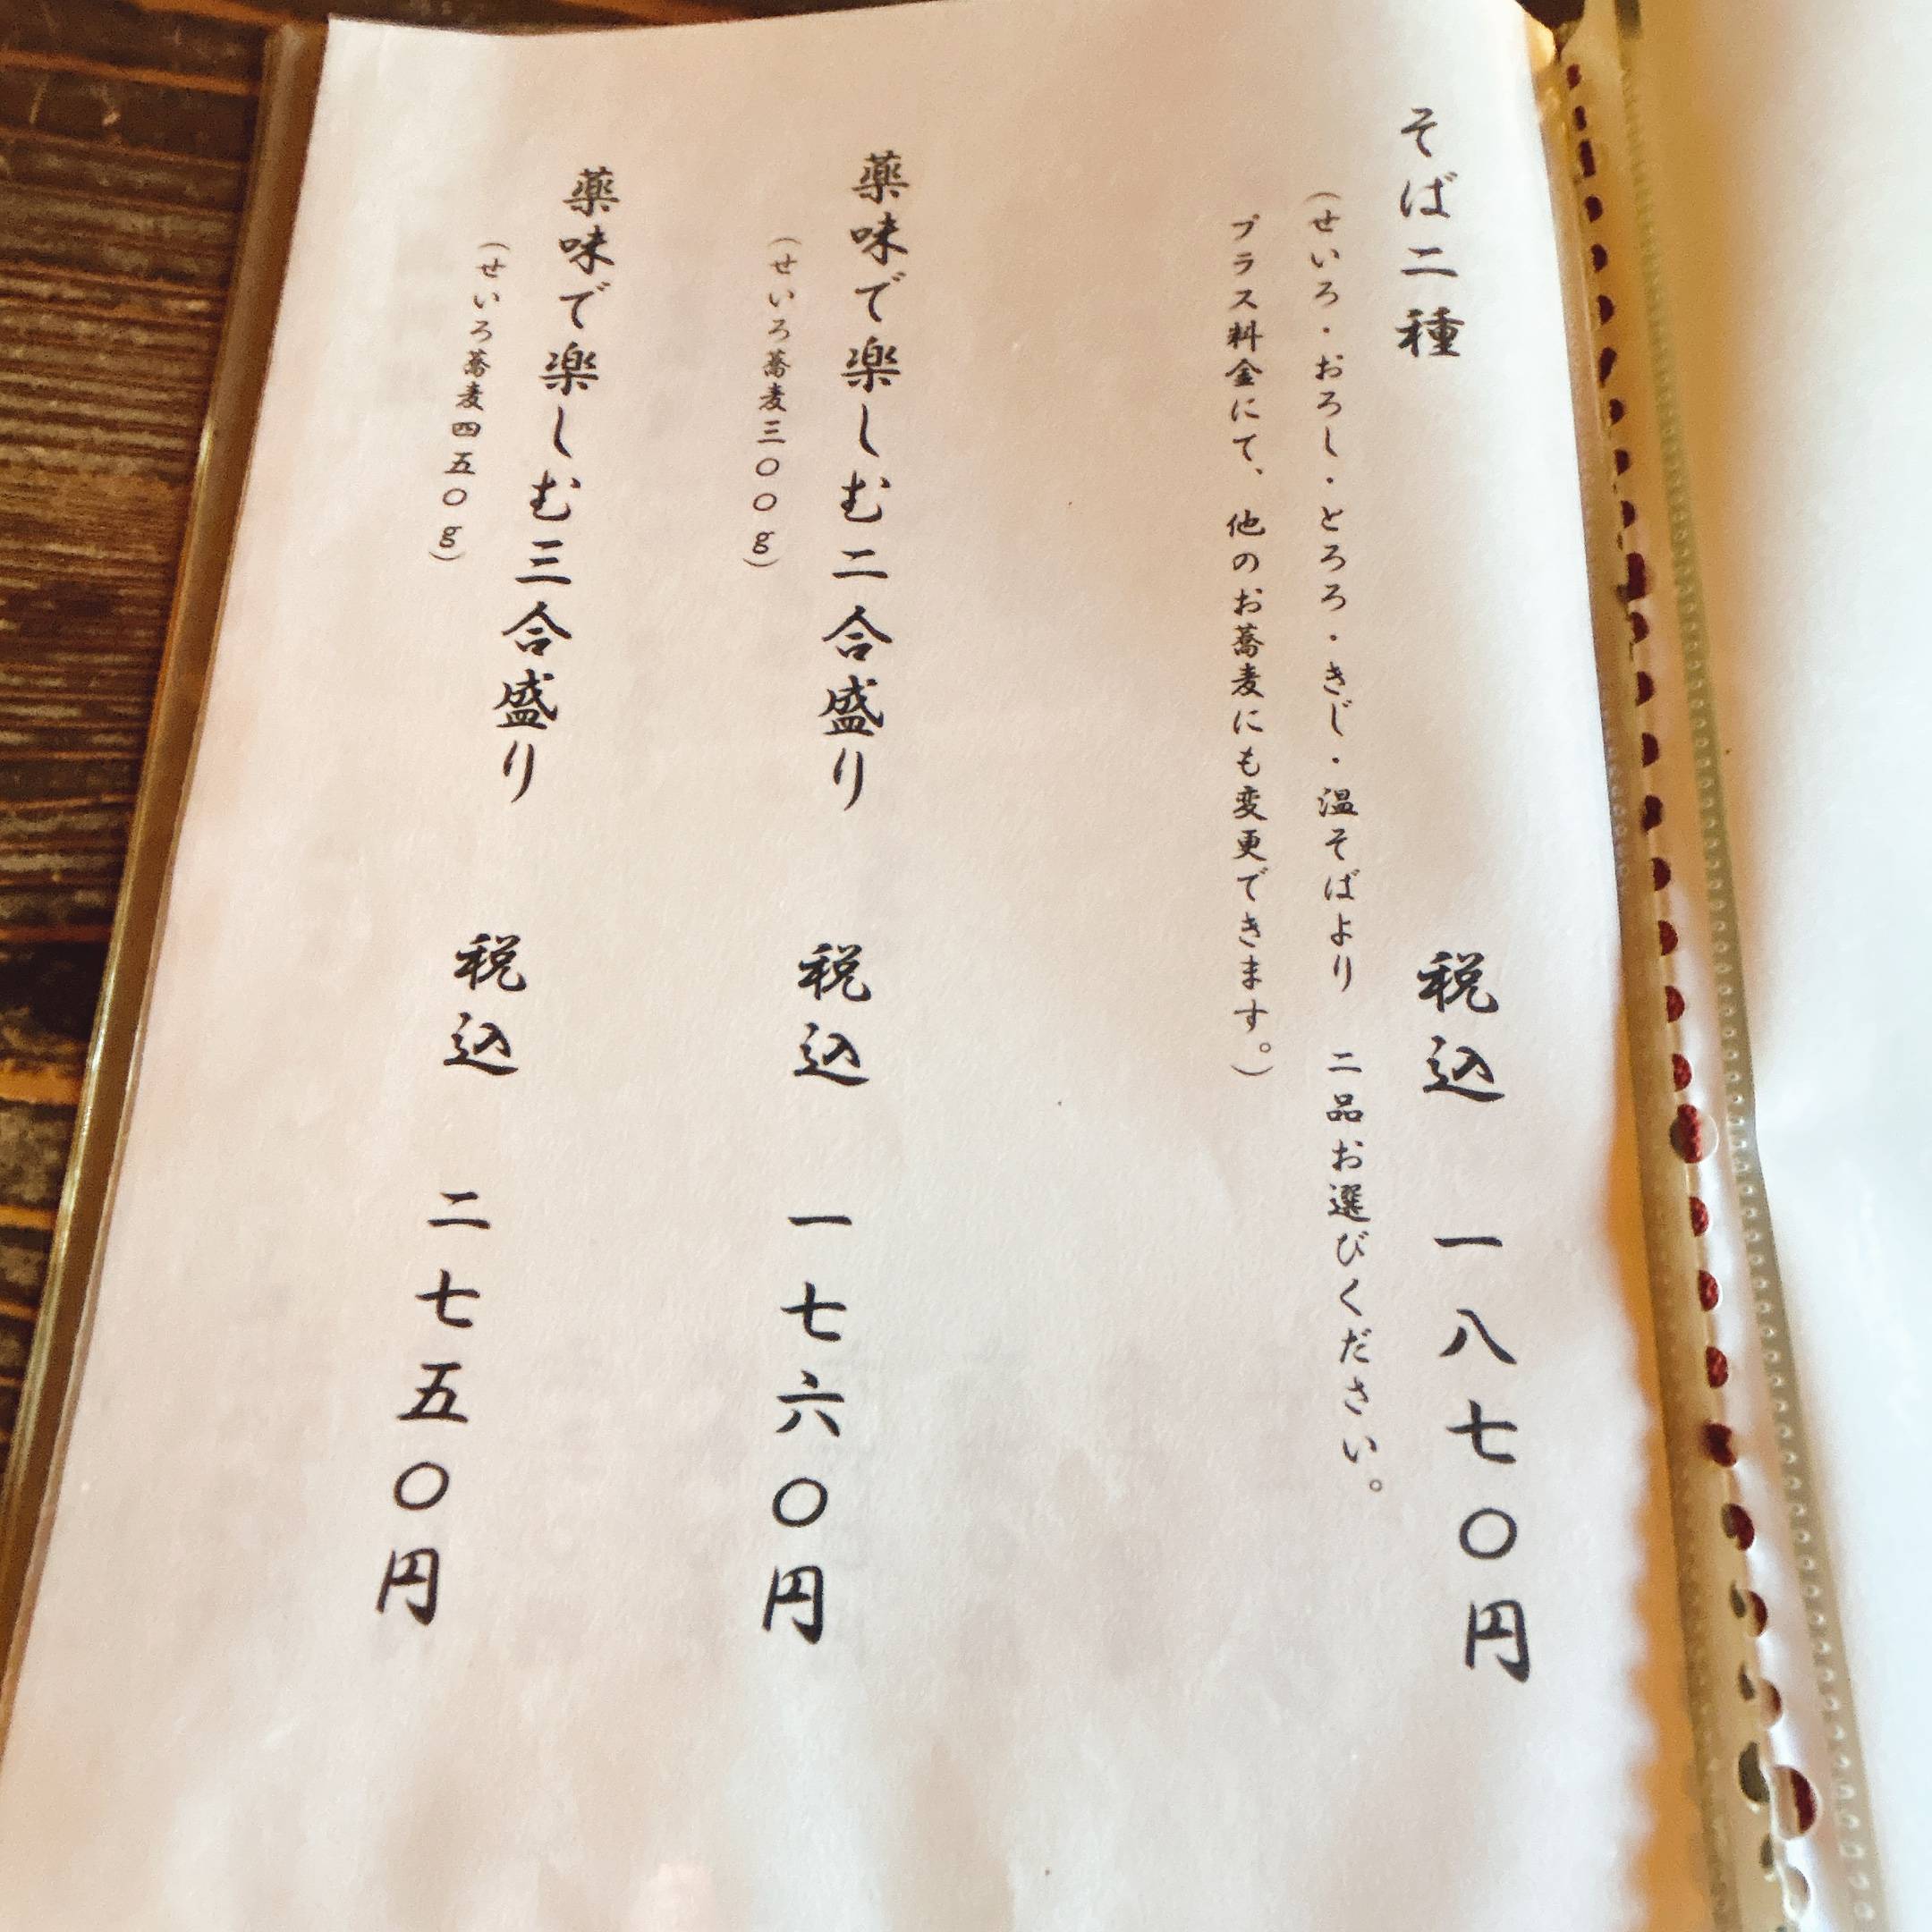 そば二種　税込　一八七〇円
（せいろ・おろし・とろろ・きじ・温そばより　二品お選びください。
プラス料金にて、他のお蕎麦にも変更できます。）
薬味で楽しむ二合盛り　税込　一七六〇円
（せいろ蕎麦三〇〇g）
薬味で楽しむ三合盛り　税込　二七五〇円
（せいろ蕎麦四五〇g）